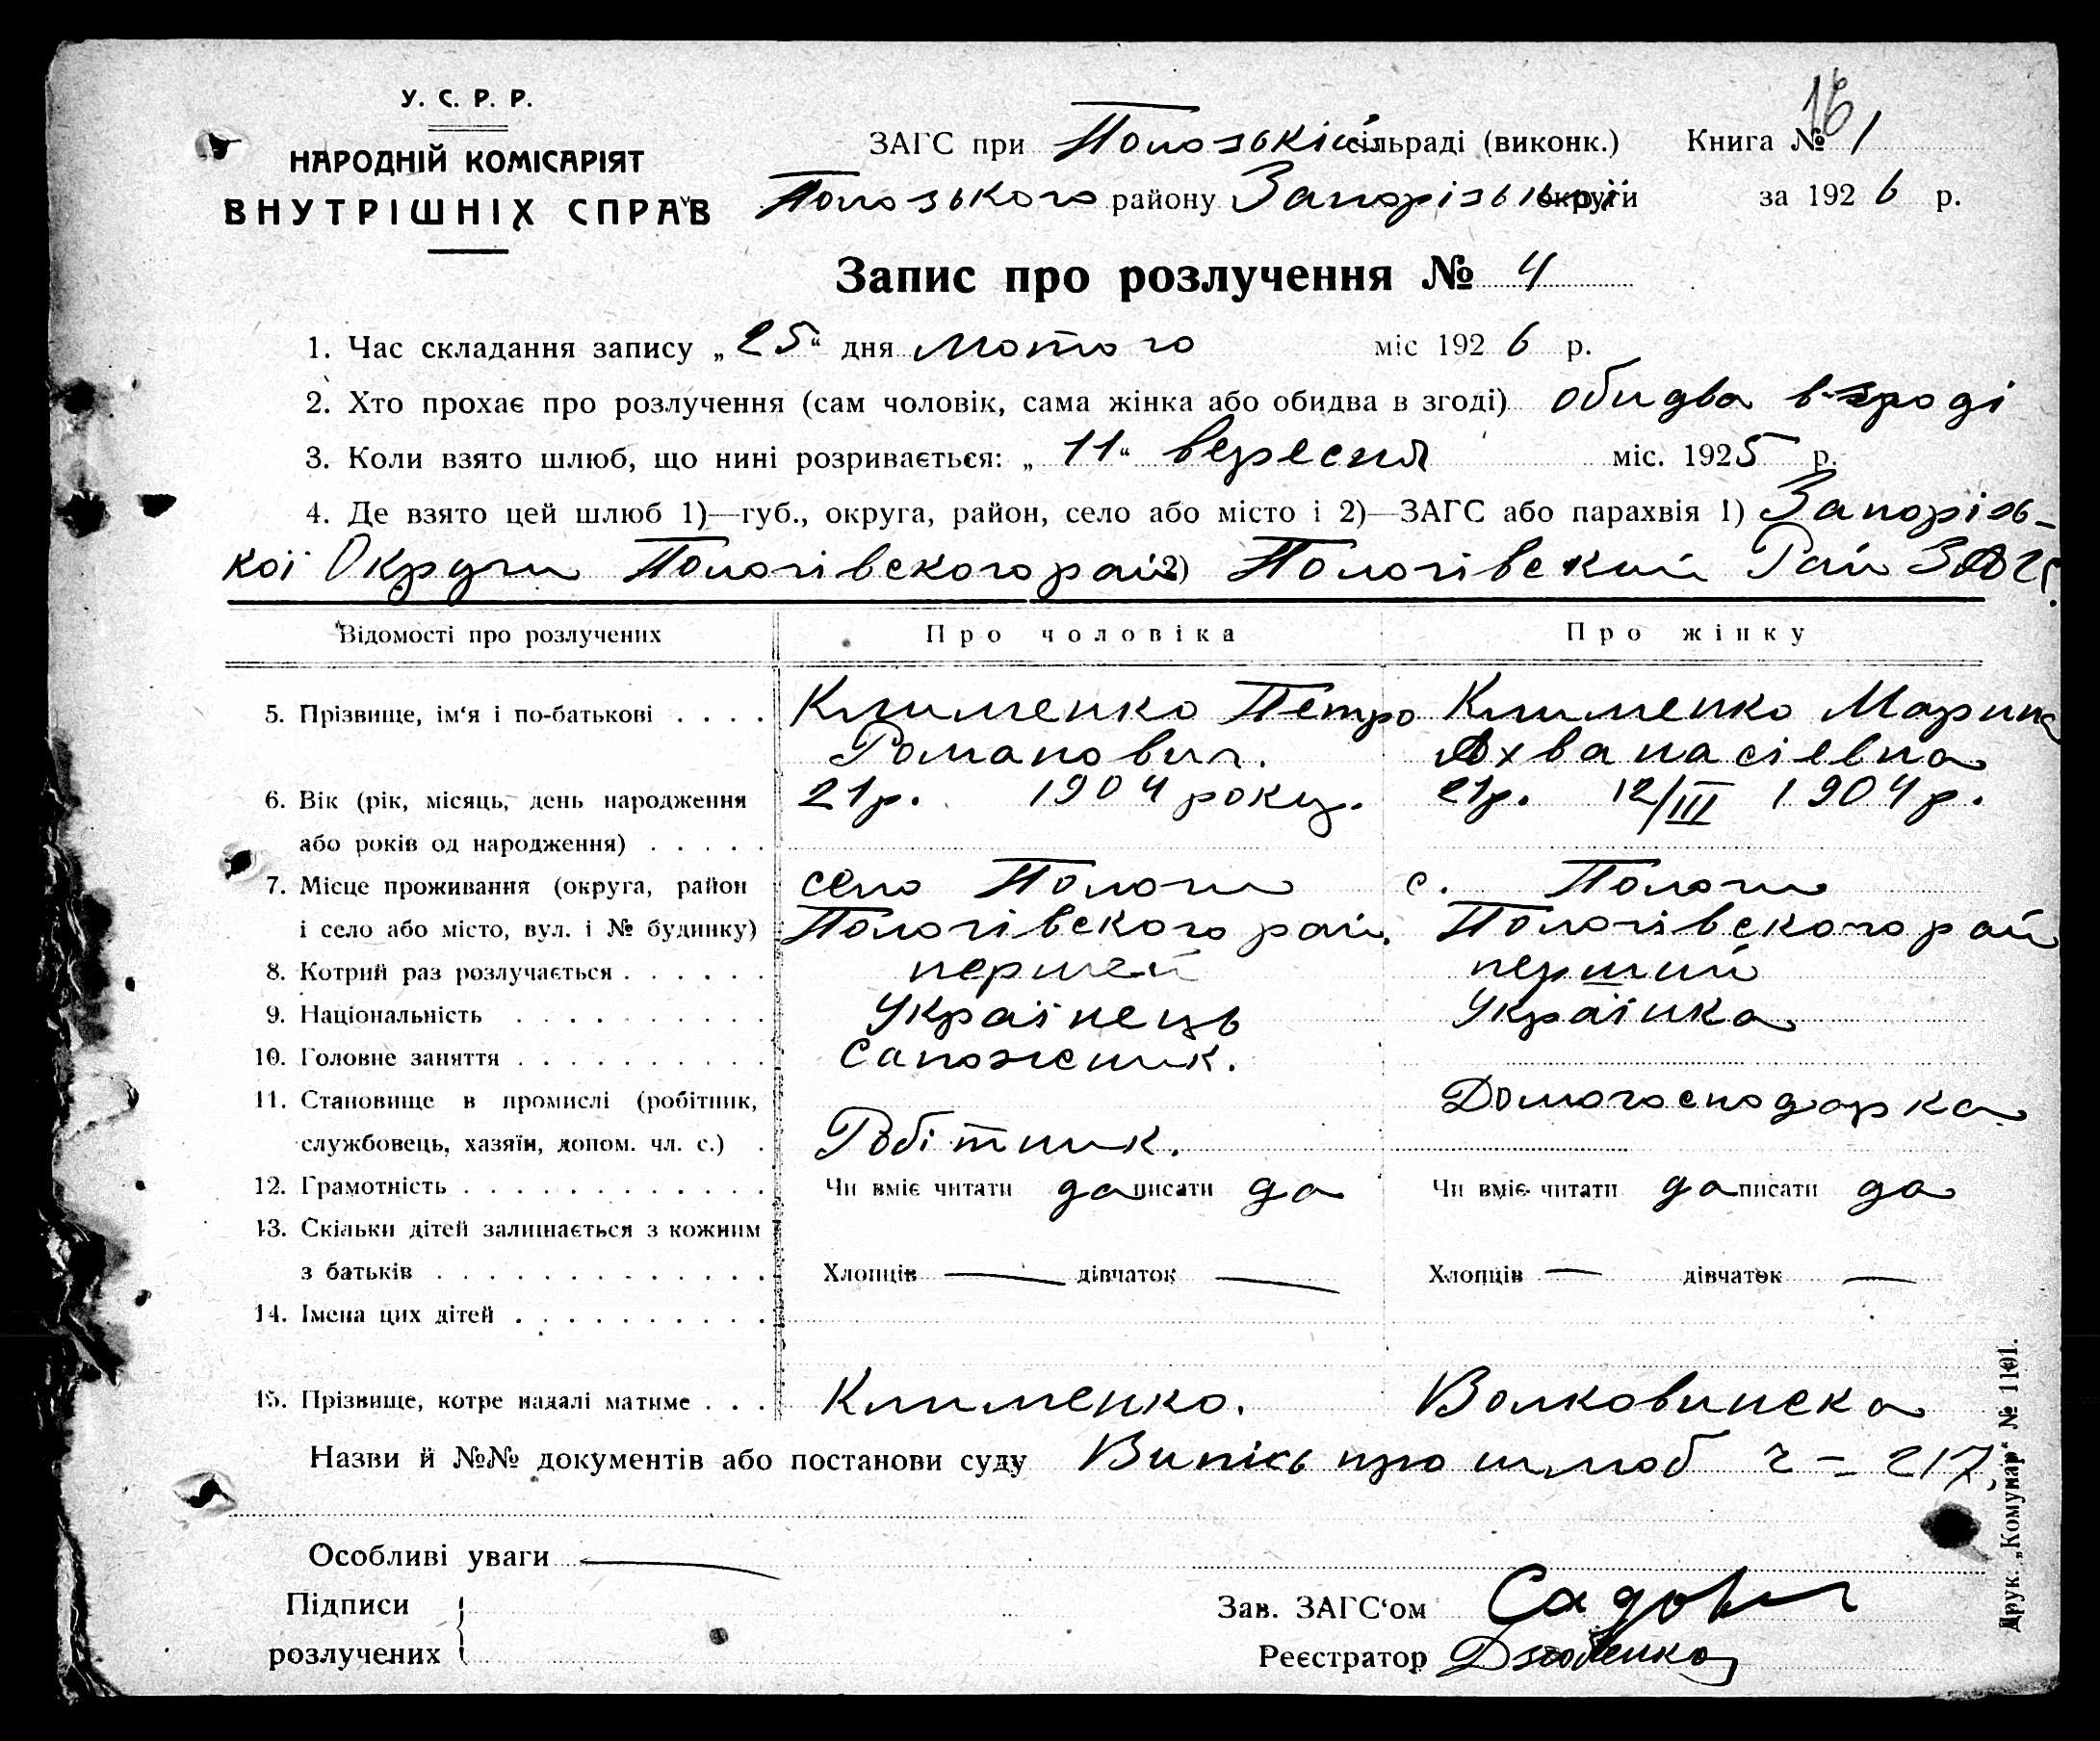 16
У. С. Р. Р.
НАРОДНІЙ КОМІСАРІЯТ
ВНУТРІШНІХ СПРАВ
ЗАГС при Положській сільраді (виконк.) Книга № 1
Положського району Запорізької округи за 1926 р.
Запис про розлучення № 4
1. Час складання запису „25“ дня Лютого міс 1926 р.
2. Хто прохає про розлучення (сам чоловік, сама жінка або обидва в згоді) обидва в згоді
3. Коли взято шлюб, що нині розривається: „11“ вересня міс. 1925 р.
4. Де взято цей шлюб 1)—губ., округа, район, село або місто і 2)—ЗАГС або парахвія 1) Запорізь-
кої Округи Пологівского рай 2) Пологівский Рай ЗАГС.
Відомості про розлучених Про чоловіка Про жінку
5. Прізвище, ім‘я і по-батькові . . . . Клименко Петро Клименко Марина
Романович. Ахванасіевна
6. Вік (рік, місяць, день народження 21р. 1904 року. 21р. 12/III 1904 р.
або років од народження) . . . . .
7. Місце проживання (округа, район село Пологи с. Пологи
і село або місто, вул. і № будинку) Пологівского рай. Пологівского рай
8. Котрий раз розлучається . . . . . . перший перший
9. Національність . . . . . . . . . . Українець Українка
10. Головне заняття . . . . . . . . . . Сапожник.
11. Становище в промислі (робітник, Домогосподарка
службовець, хазяїн, допом. чл. с.) . Робітник.
12. Грамотність . . . . . . . . . . . . Чи вміє читати да писати да Чи вміє читати да писати да
13. Скільки дітей залишається з кожним
з батьків . . . . . . . . . . . . . Хлопців — дівчаток — Хлопців — дівчаток —
14. Імена цих дітей . . . . . . . . . .
15. Прізвище, котре надалі матиме . . . Клименко. Волковинска
Назви й №№ документів або постанови суду Випись про шлюб ч – 217.
Особливі уваги —
Підписи Зав. ЗАГС‘ом
розлучених Реєстратор
Друк. „Комунар“ № 1101.